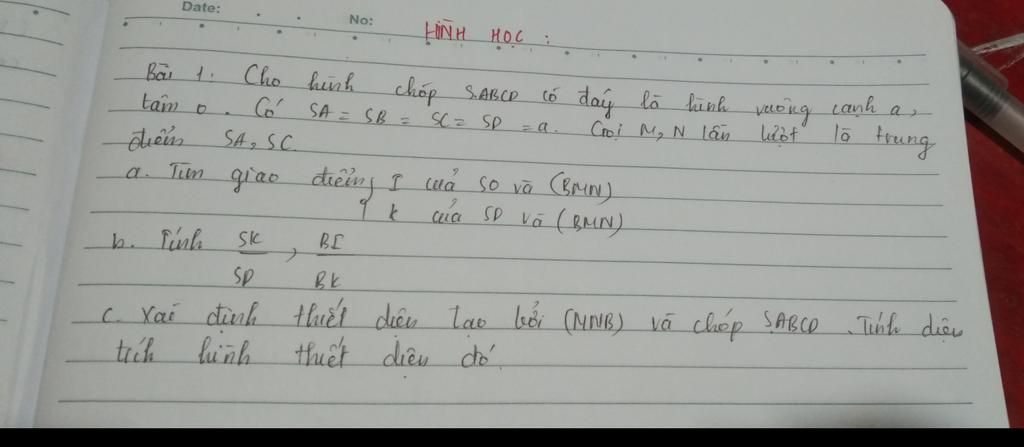 Date:
No:
HÌNH HỌC :
Bài 1: Cho hình chóp S.ABCD có đáy là hình vuông cạnh a,
tâm O. Có SA = SB = SC = SD = a. Gọi M, N lần lượt là trung
điểm SA, SC.
a. Tìm giao điểm I của SO và (BMN)
K của SD và (BMN)
b. Tính SK/SD, BI/BK
c. Xác định thiết diện tạo bởi (MNB) và chóp S.ABCD. Tính diện
tích hình thiết diện đó.